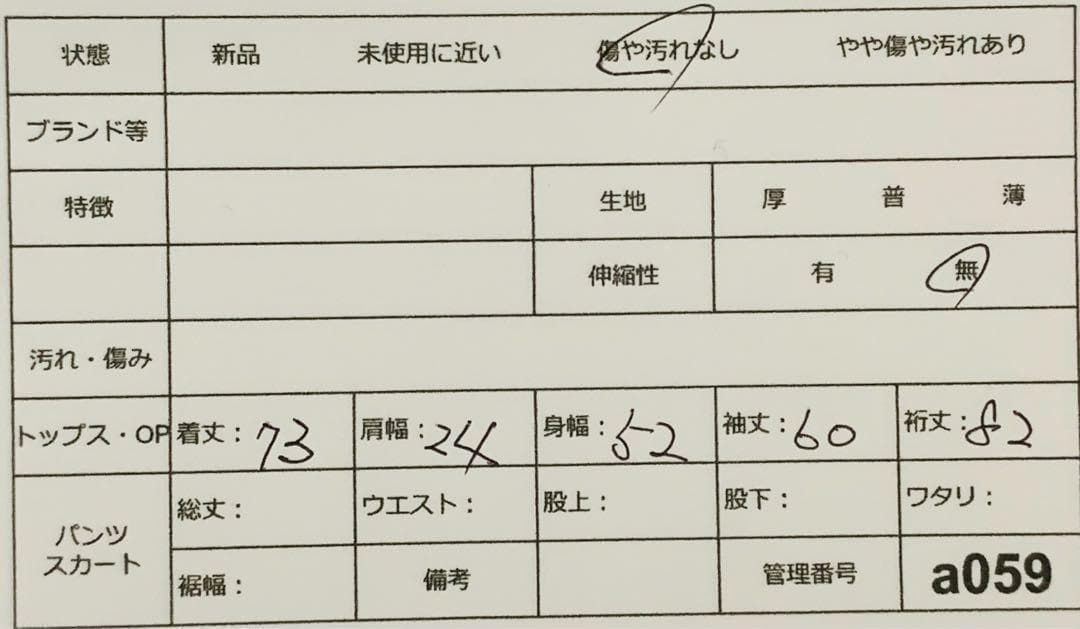 状態 新品 未使用に近い 傷や汚れなし やや傷や汚れあり
ブランド等
特徴 生地 厚 普 薄
伸縮性 有 無
汚れ・傷み
トップス・OP 着丈：73 肩幅：24 身幅：52 袖丈：60 裄丈：82
パンツ
スカート
総丈： ウエスト： 股上： 股下： ワタリ：
裾幅： 備考 管理番号 a059